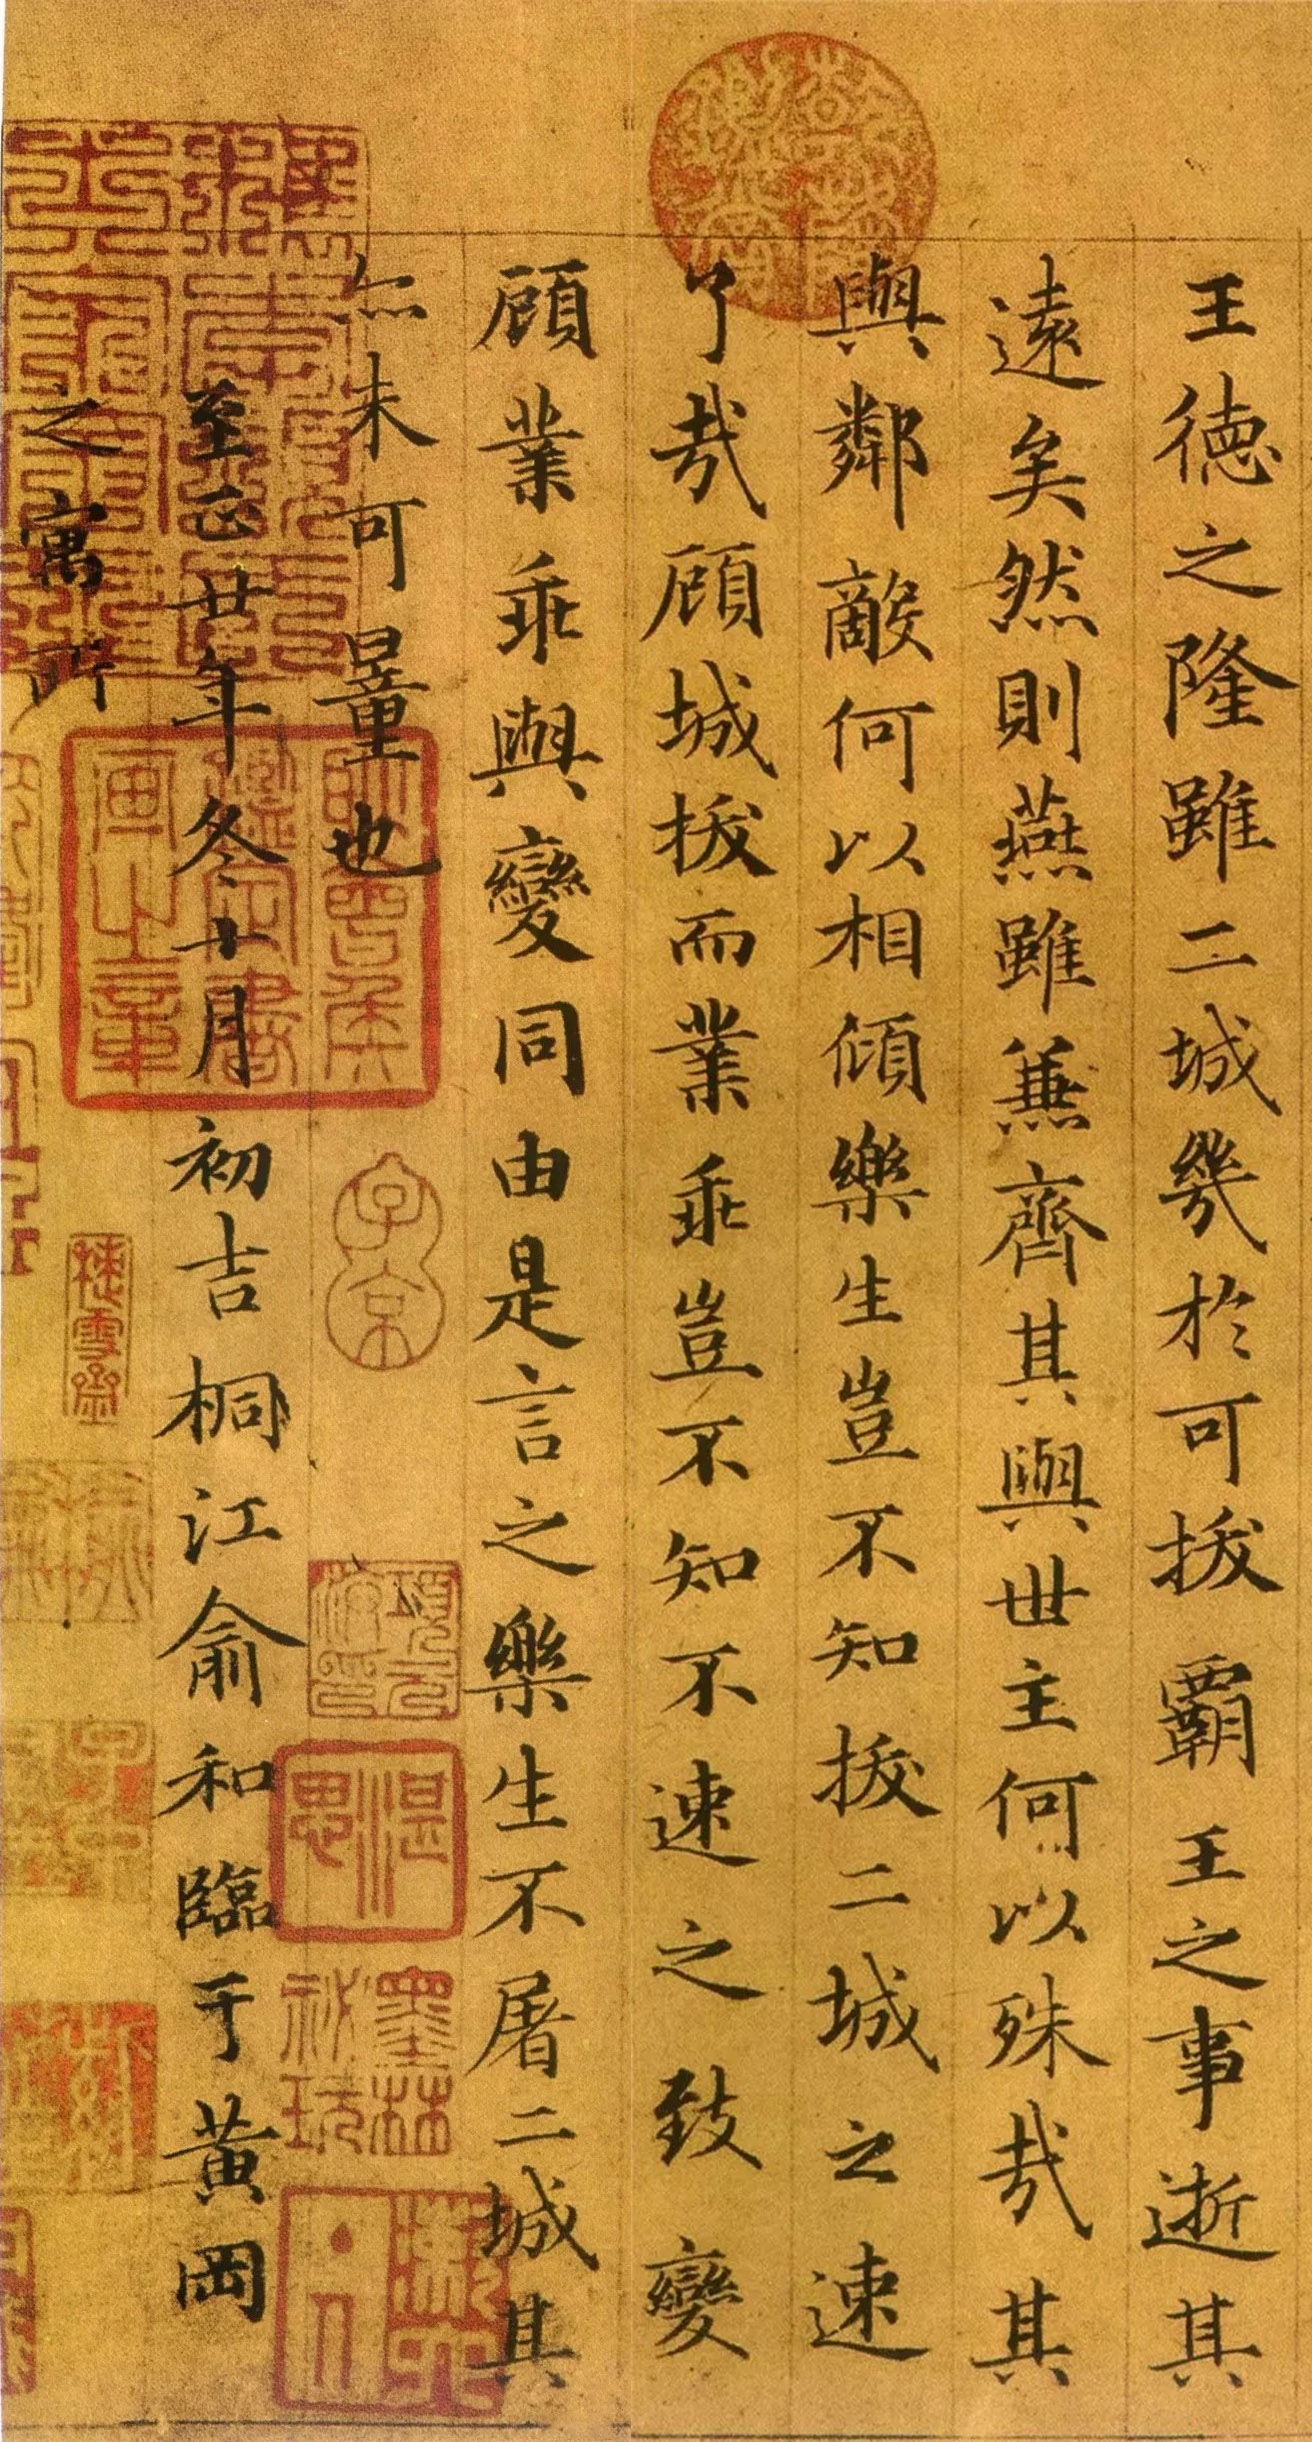 王德之隆雖二城幾於可拔霸王之事逝其
遠矣然則燕雖兼齊其與世主何以殊哉其
與鄰敵何以相傾樂生豈不知拔二城之速
了哉顧城拔而業乖豈不知不速之致變
顧業乖與變同由是言之樂生不屠二城其
亦未可量也
至正廿年冬十月初吉桐江俞和臨于黃岡
之寓所
子京
項元汴印
墨林秘玩